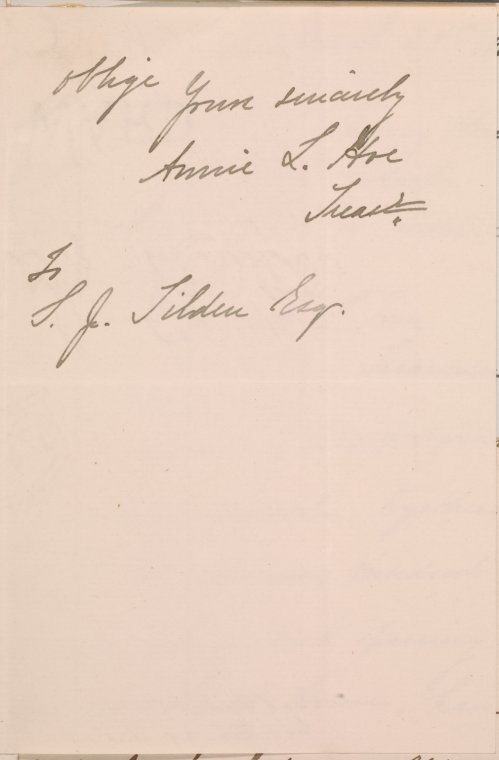 oblige Yours sincerely
Annie L. Hoe
Treasr.
To
S. J. Tilden Esqr.